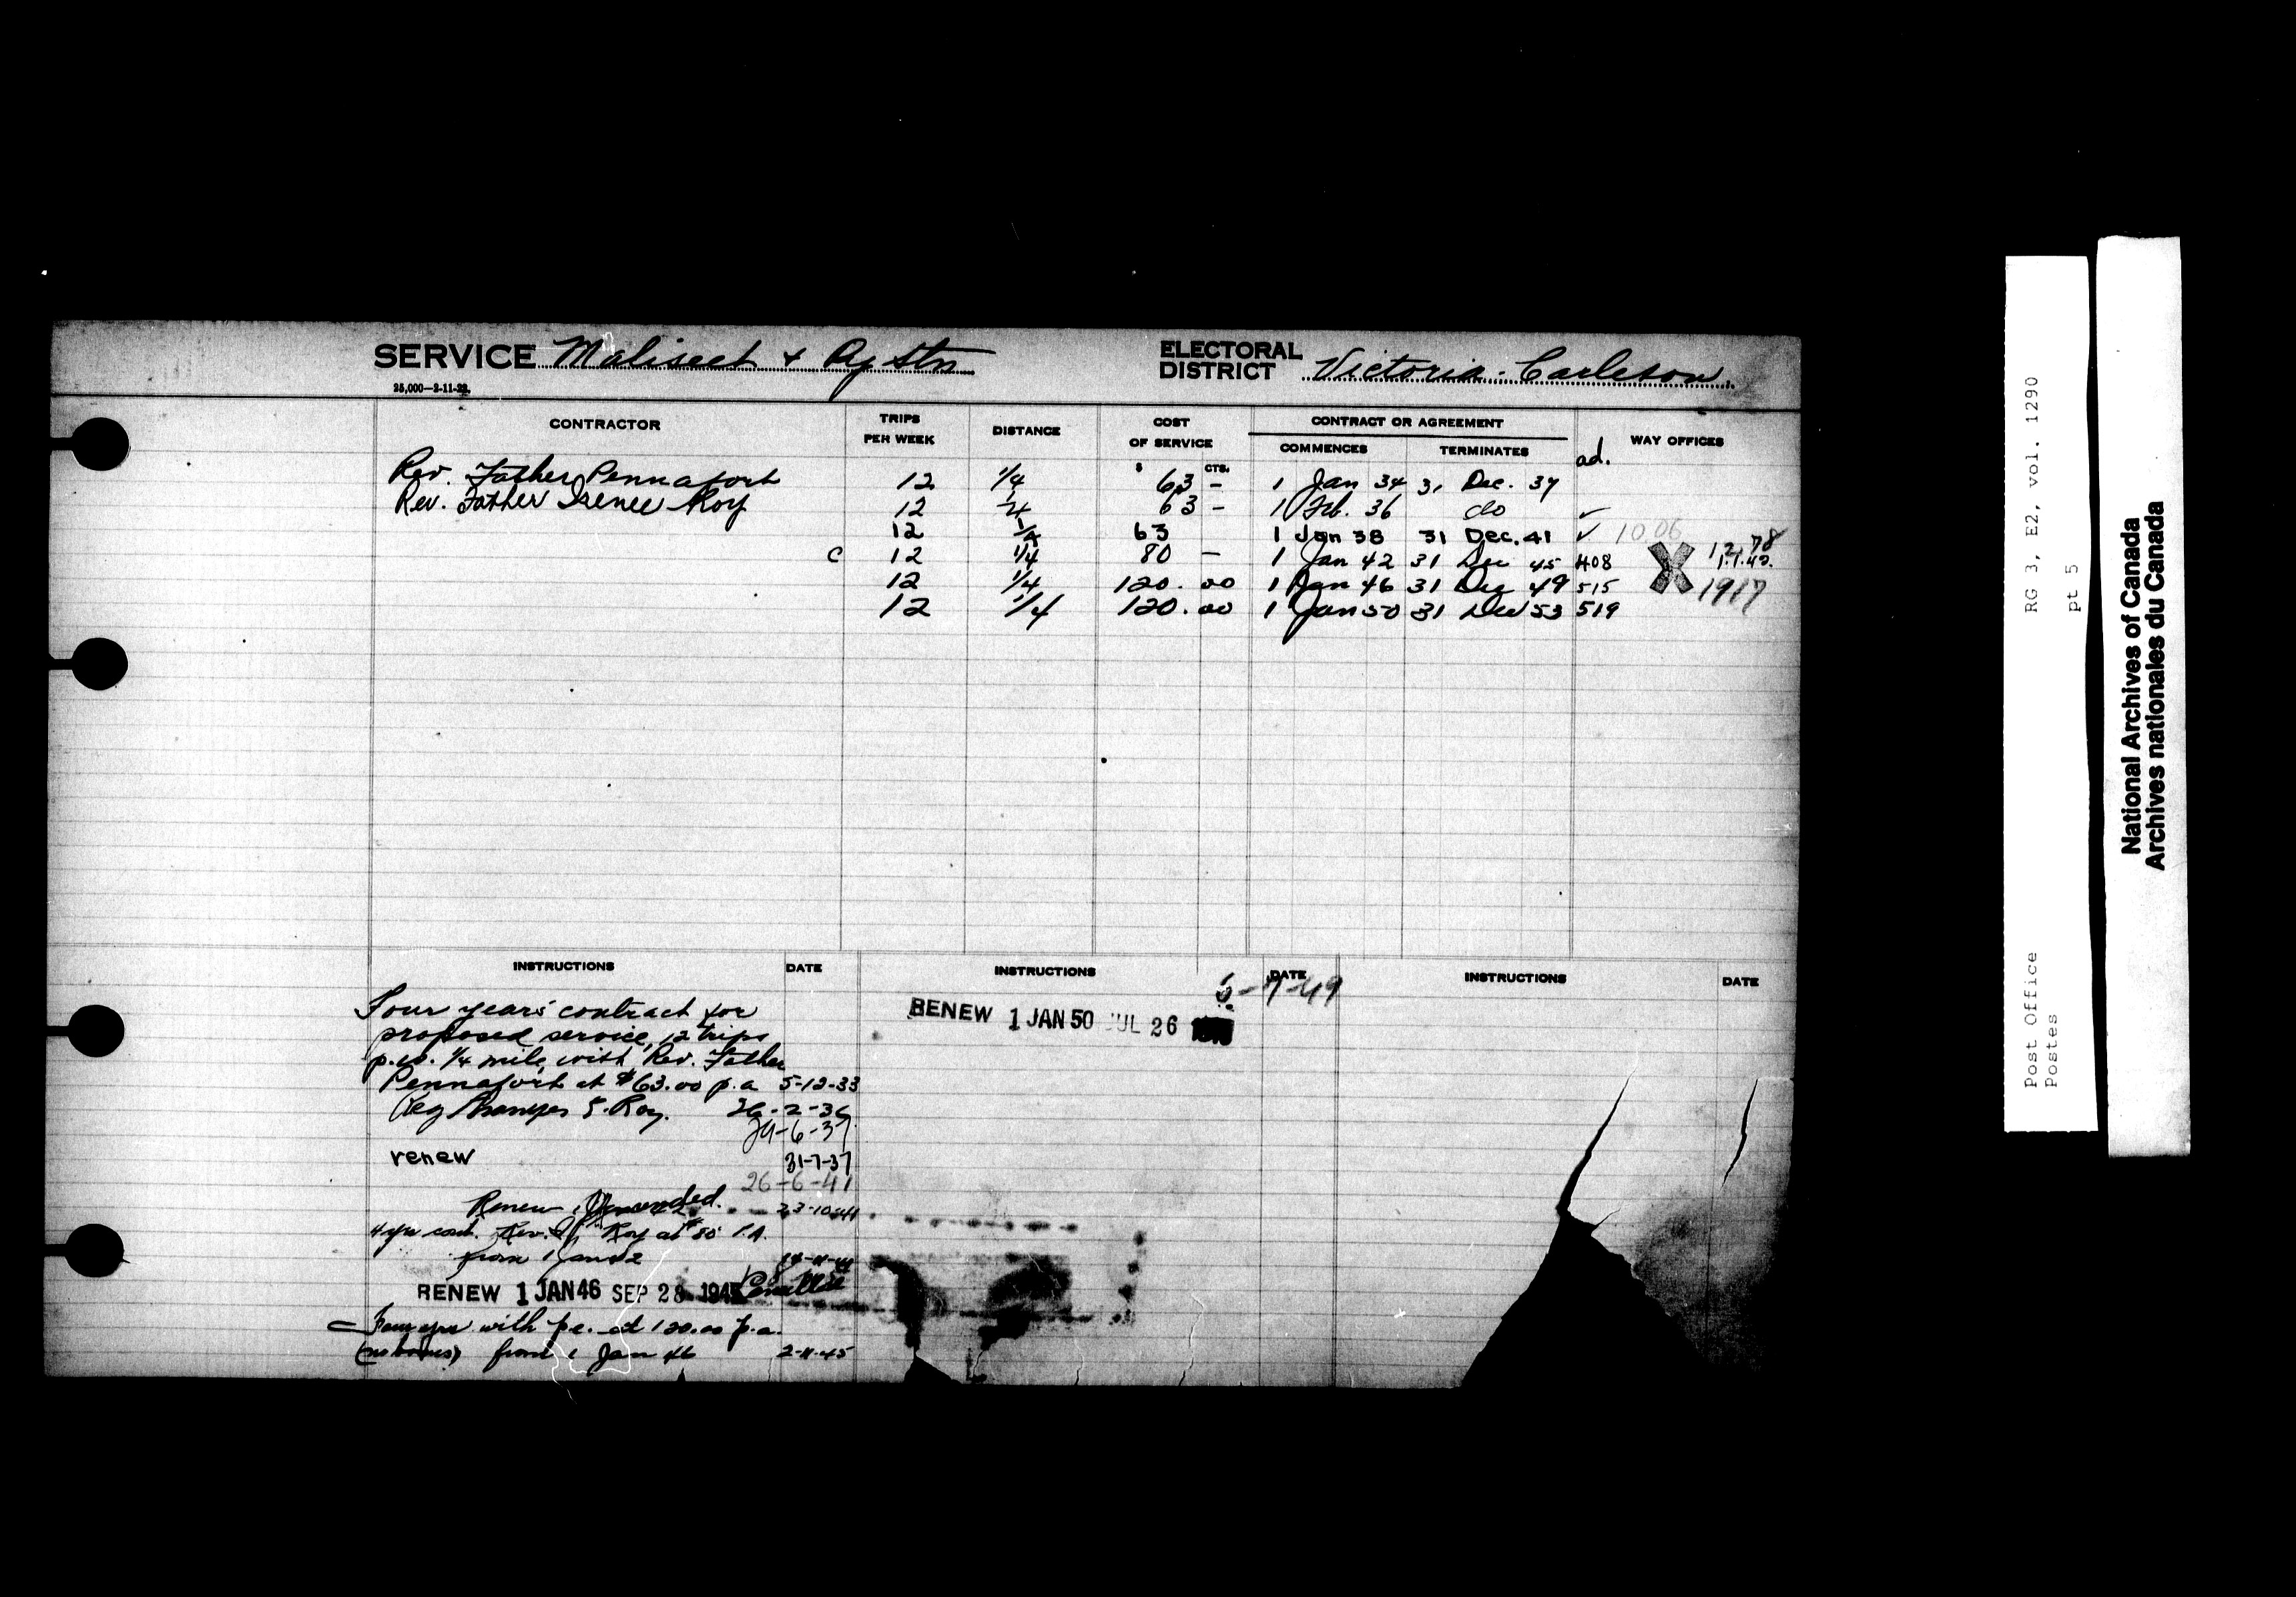 SERVICE Maliseet & Ry Stn ELECTORAL DISTRICT Victoria-Carleton
25,000—2-11-22.
CONTRACTOR TRIPS PER WEEK DISTANCE COST OF SERVICE CONTRACT OR AGREEMENT WAY OFFICES
COMMENCES TERMINATES
$ CTS. ad.
Rev. Father Pennafort 12 1/4 63 - 1 Jan 34 31 Dec. 37
Rev. Father Irenee Roy 12 1/4 63 - 1 Feb. 36 do ✓
12 1/4 63 1 Jan 38 31 Dec. 41 ✓ 1006
C 12 1/4 80 - 1 Jan 42 31 Dec 45 408 X 1278
1.1.42.
12 1/4 120.00 1 Jan 46 31 Dec 49 515 1917
12 1/4 120.00 1 Jan 50 31 Dec 53 519
INSTRUCTIONS DATE INSTRUCTIONS DATE INSTRUCTIONS DATE
Four years contract for
proposed service, 12 trips
p.w. 1/4 mile, with Rev. Father
Pennafort at $63.00 p.a 5-12-33
I. Roy. 26-2-36
29-6-37
renew 31-7-37
26-6-41
Renew 23-10-41
4 yr cont. Rev. Roy at $80 P.A.
from 1 Jan 42
RENEW 1 JAN 46 SEP 28 1945
Four yrs with p.c. at 120.00 p.a.
(no bonus) from 1 Jan 46 2-11-45
5-7-49
RENEW 1 JAN 50 JUL 26
Post Office RG 3, E2, vol. 1290
Postes pt 5
National Archives of Canada
Archives nationales du Canada